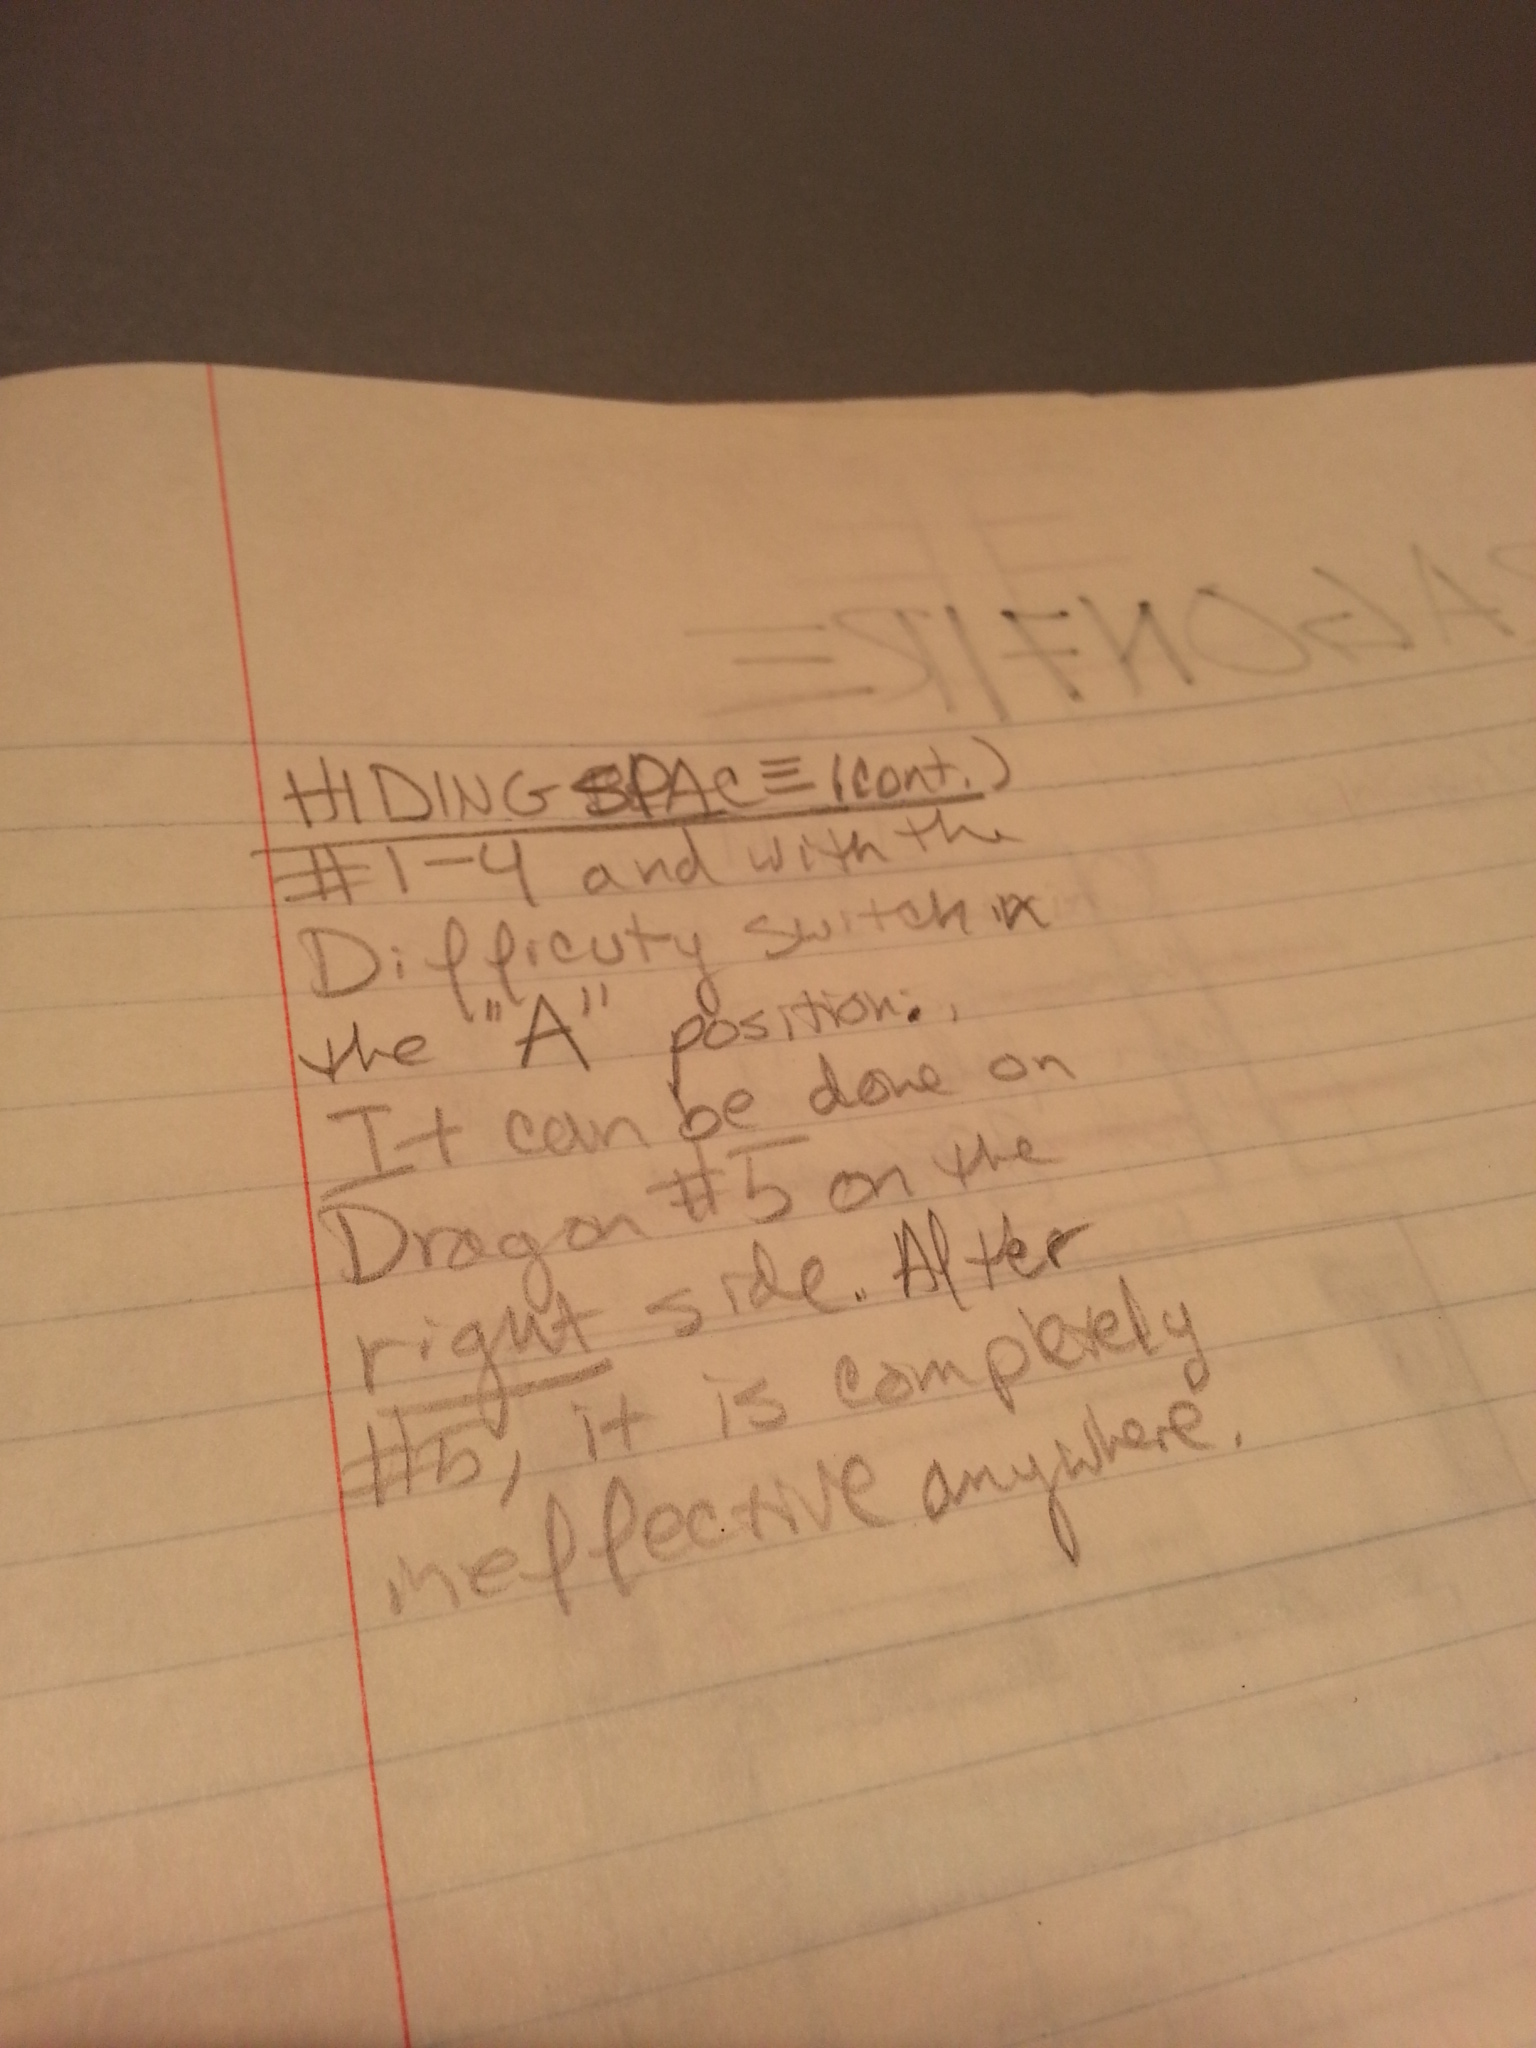 DRAGONFIRE
HIDING SPACE (cont.)
#1-4 and with the
Difficuty switch in
the "A" position.
It can be done on
Dragon #5 on the
right side. After
#5, it is completely
ineffective anywhere.